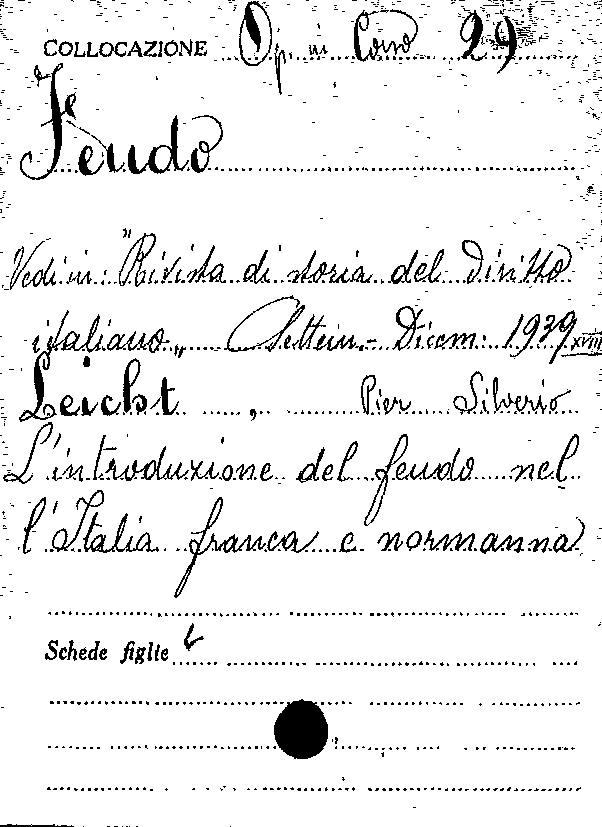 COLLOCAZIONE Op. in Corso 29
Feudo
Vedi in: "Rivista di storia del diritto
italiano„ Settem.- Dicem: 1939 XVIII
Leicht, Pier Silverio
L'introduzione del feudo nel
l'Italia franca e normanna
Schede figlie